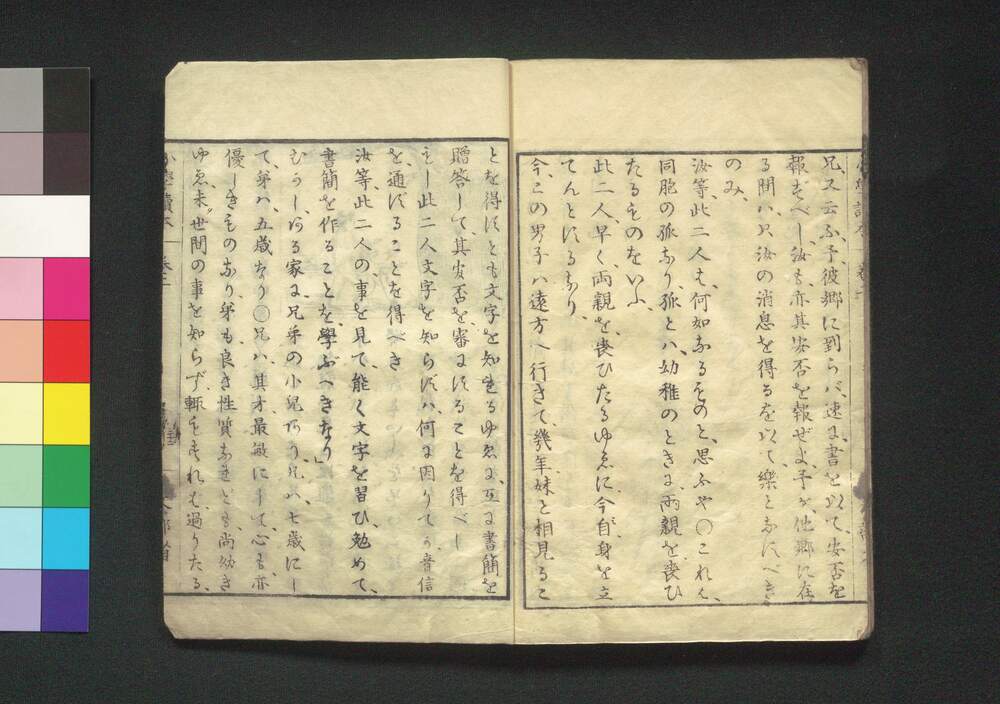 兄又云ふ、予彼郷に到らバ、速に書を以て、安否を
報ずべし、汝も亦其安否を報ぜよ、予が他郷に在
る間ハ、只汝の消息を得るを以て、樂となすべき
のみ、
汝等、此二人は、何如なるものと、思ふや〇これは、
同胞の孤なり、孤とハ、幼稚のときに、両親を喪ひ
たるものをいふ、
此二人早く、両親を、喪ひたるゆゑに、今自、身を立
てんとするなり、
今、この男子ハ遠方へ行きて、幾年妹と相見るこ
とを得ずとも文字を知れるゆゑに、互に書簡を
贈答して、其安否を審にすることを得べし
もし此二人文字を知らずハ、何に因りてか音信
を、通ずることを得べき
汝等、此二人の、事を見て、能く文字を習ひ勉めて、
書簡を作ることを、學ぶべきなり」
むかし、ある家に兄弟の小兒あり、兄ハ、七歳にし
て、弟ハ、五歳なり〇兄ハ、其才最敏にして、心も亦
優しきものなり、弟も、良き性質なれども、尚幼き
ゆゑ、未世間の事を知らず、輙もすれば、過りたる、
小學讀本 巻二